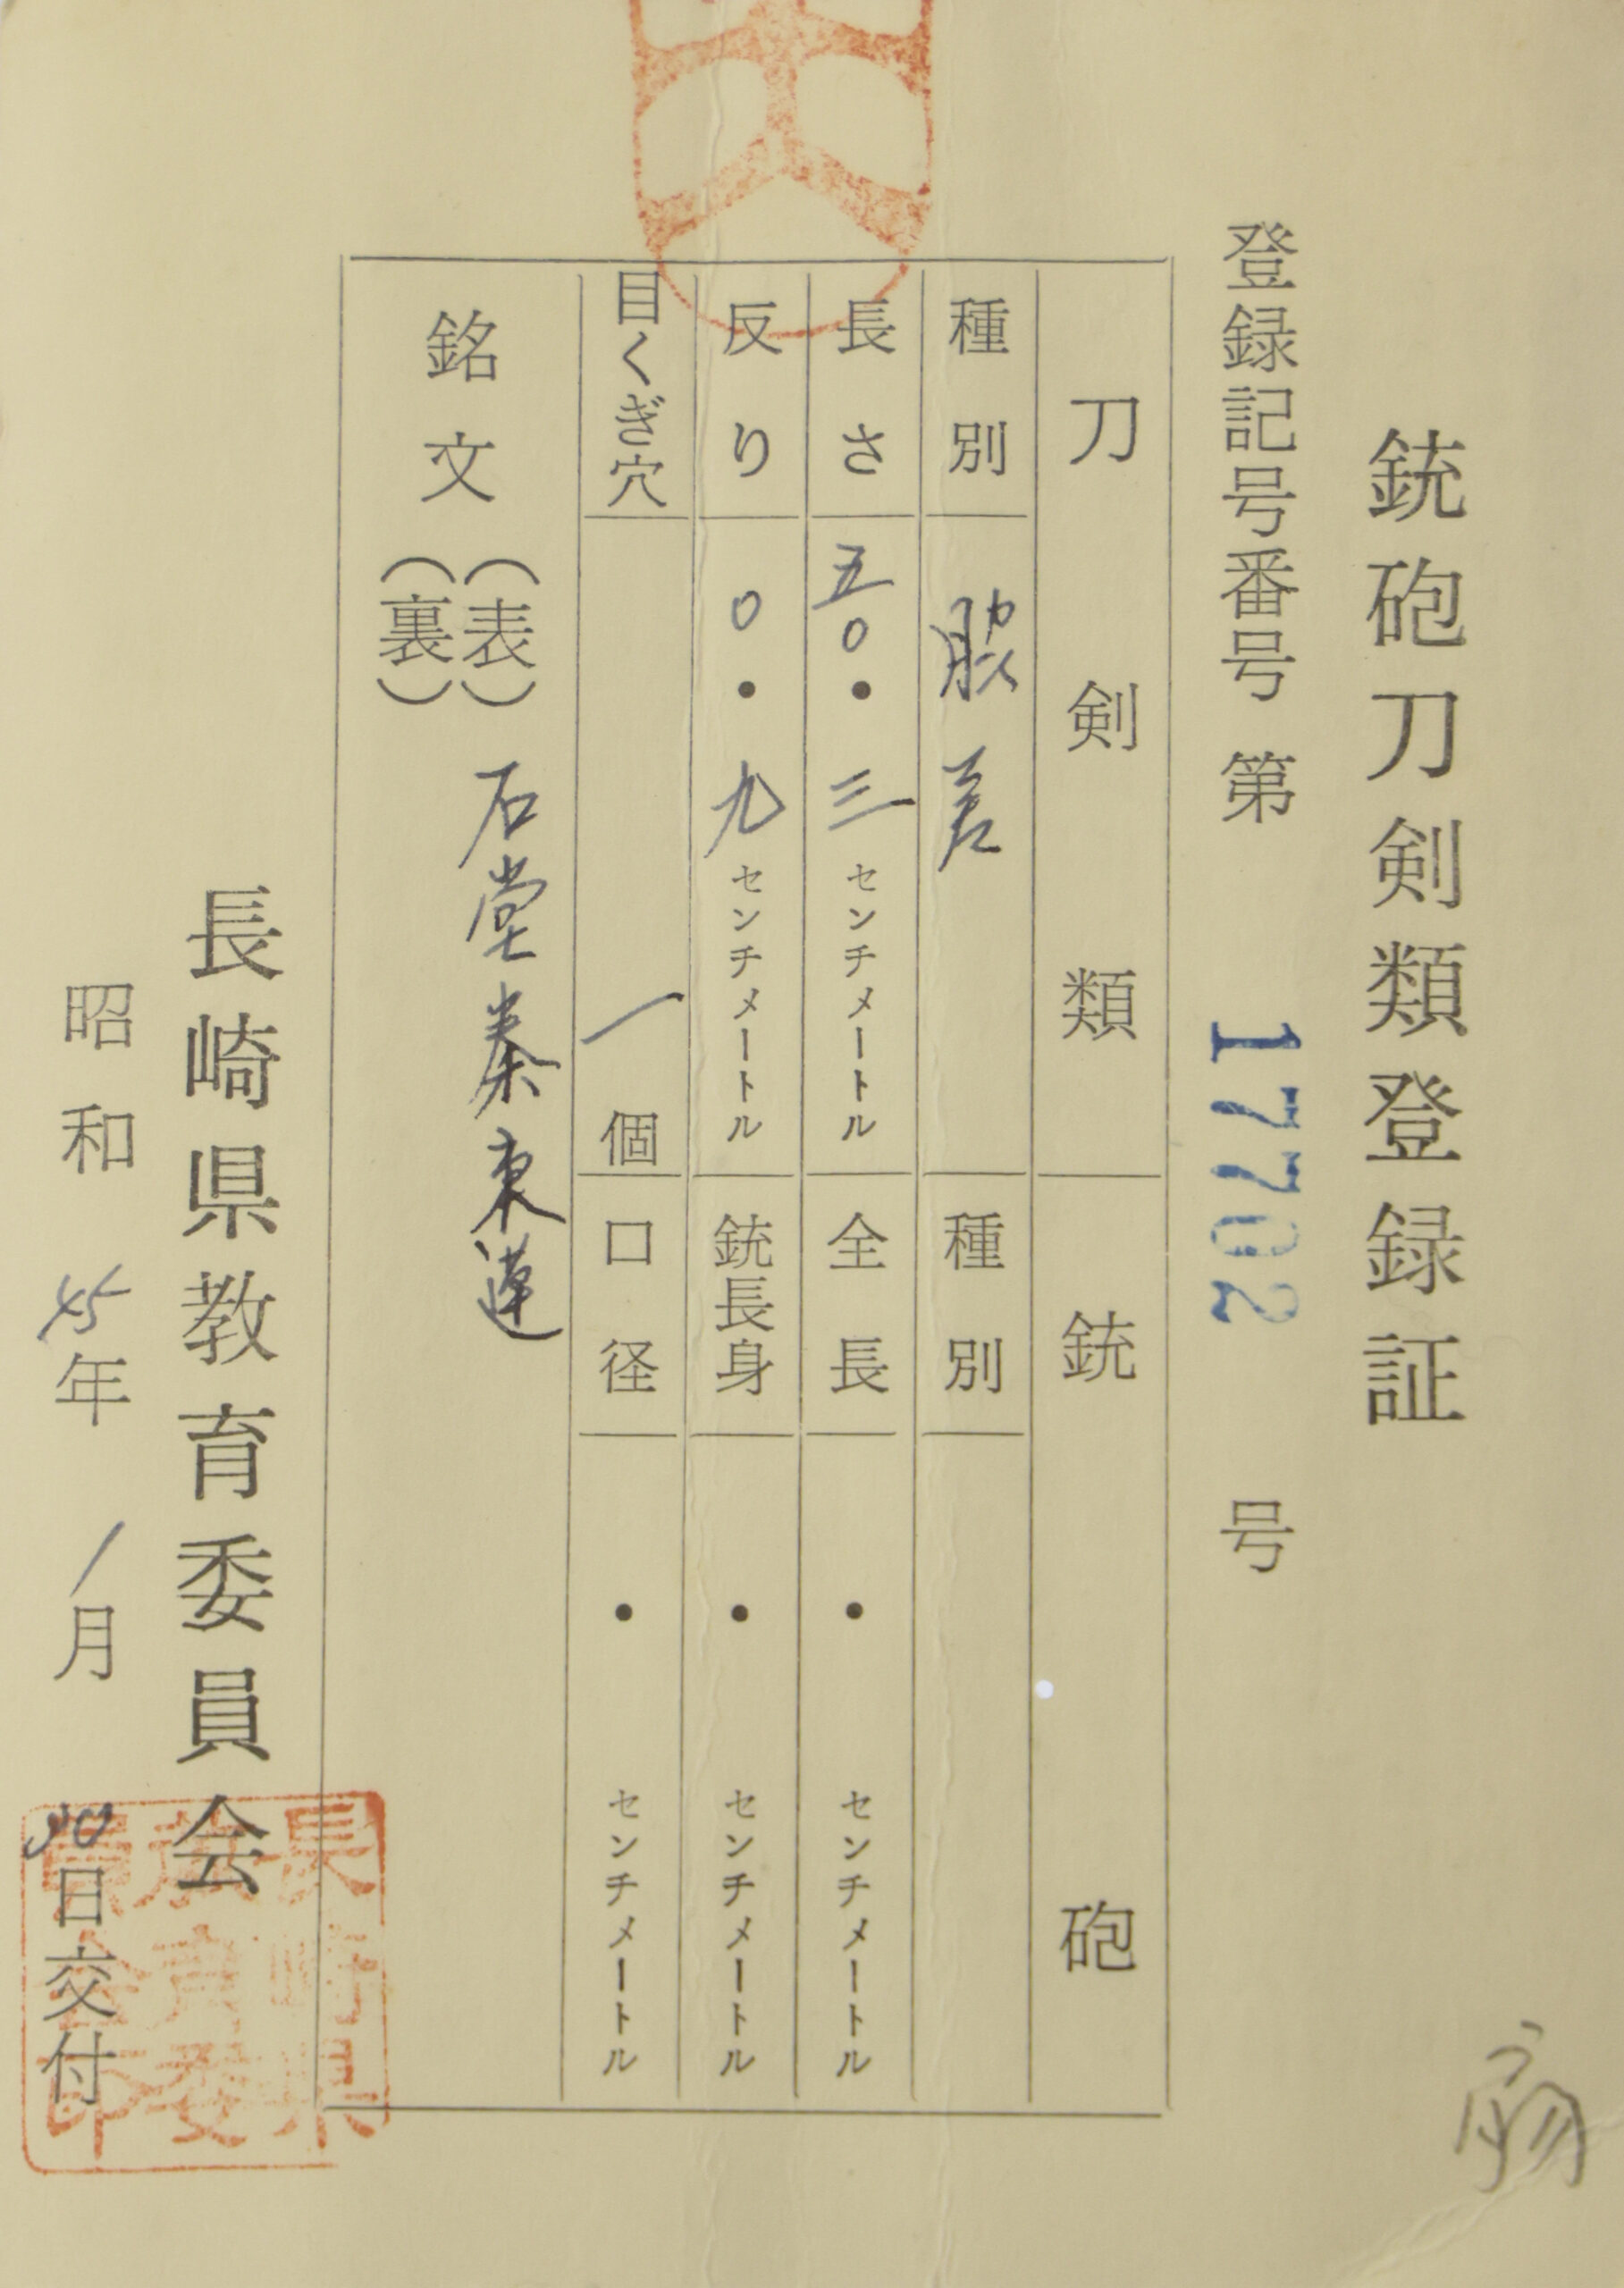 銃砲刀剣類登録証
登録記号番号 第 17702 号
刀剣類
種別 脇差
長さ 五〇・三 センチメートル
反り 〇・九 センチメートル
目くぎ穴 一 個
銃砲
種別
全長 ・ センチメートル
銃身長 ・ センチメートル
口径 ・ センチメートル
銘文 (表) 石堂秦東連
(裏)
長崎県教育委員会
昭和 45年 1月 30日交付
長崎県
教育委
員会印